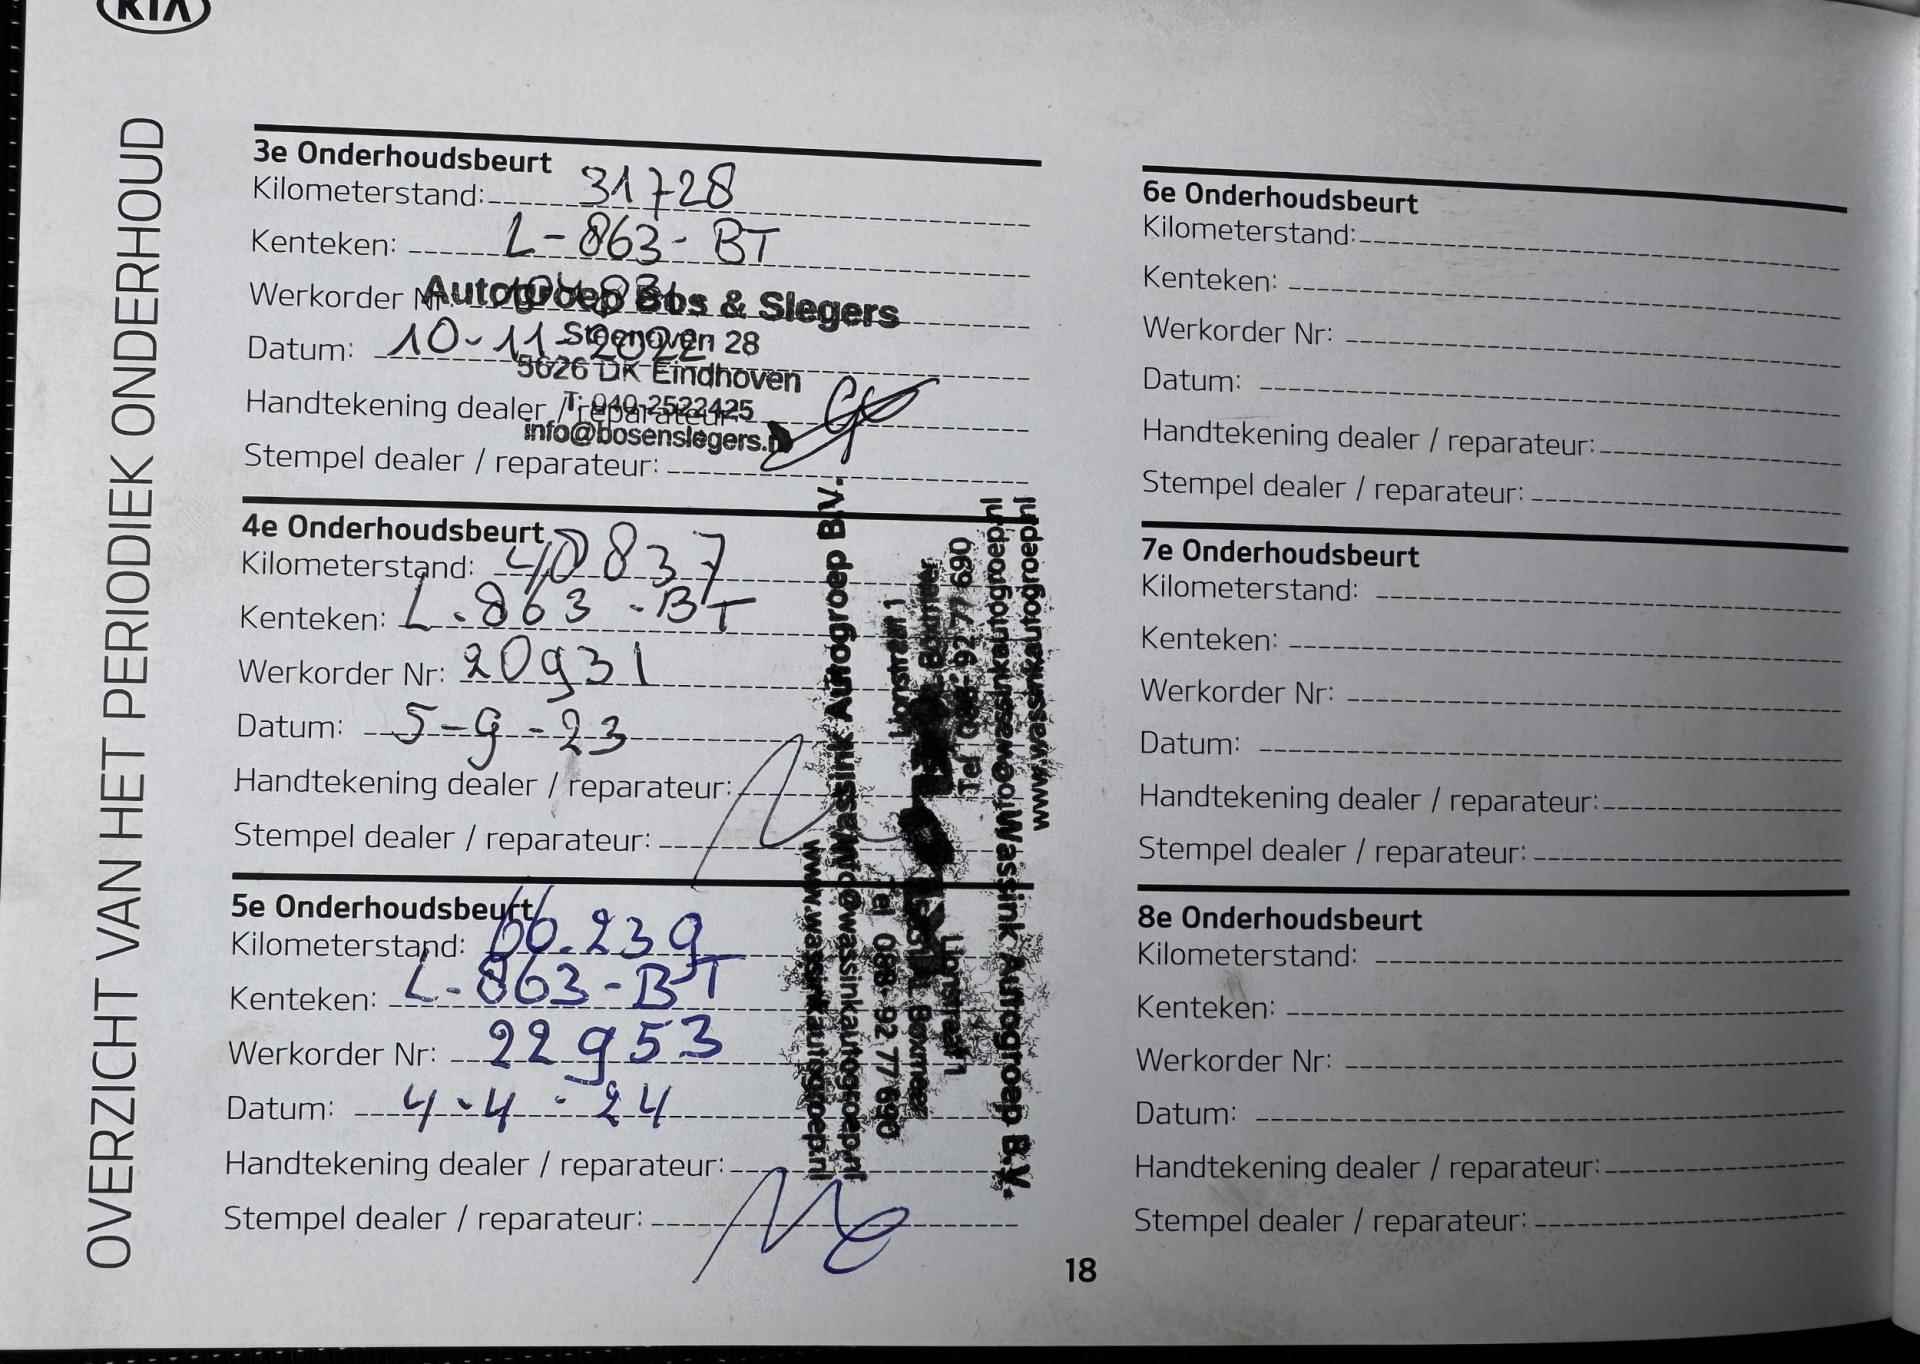 KIA
OVERZICHT VAN HET PERIODIEK ONDERHOUD
3e Onderhoudsbeurt
Kilometerstand: 31728
Kenteken: L-863-BT
Werkorder Nr:
Autogroep Bos & Slegers
Datum: 10-11-2022
Steenoven 28
5626 DK Eindhoven
Handtekening dealer / reparateur:
T: 040-2522425
info@bosenslegers.nl
Stempel dealer / reparateur:
4e Onderhoudsbeurt
Kilometerstand: 40837
Kenteken: L-863-BT
Werkorder Nr: 20931
Datum: 5-9-23
Handtekening dealer / reparateur:
Stempel dealer / reparateur:
Wassink Autogroep B.V.
Lionstraat 1
Boxmeer
Tel 088-92 77 690
info@wassinkautogroep.nl
www.wassinkautogroep.nl
5e Onderhoudsbeurt
Kilometerstand: 66.239
Kenteken: L-863-BT
Werkorder Nr: 22953
Datum: 4-4-24
Handtekening dealer / reparateur:
Stempel dealer / reparateur:
Wassink Autogroep B.V.
Lionstraat 1
Boxmeer
Tel 088-92 77 690
info@wassinkautogroep.nl
www.wassinkautogroep.nl
6e Onderhoudsbeurt
Kilometerstand:
Kenteken:
Werkorder Nr:
Datum:
Handtekening dealer / reparateur:
Stempel dealer / reparateur:
7e Onderhoudsbeurt
Kilometerstand:
Kenteken:
Werkorder Nr:
Datum:
Handtekening dealer / reparateur:
Stempel dealer / reparateur:
8e Onderhoudsbeurt
Kilometerstand:
Kenteken:
Werkorder Nr:
Datum:
Handtekening dealer / reparateur:
Stempel dealer / reparateur:
18